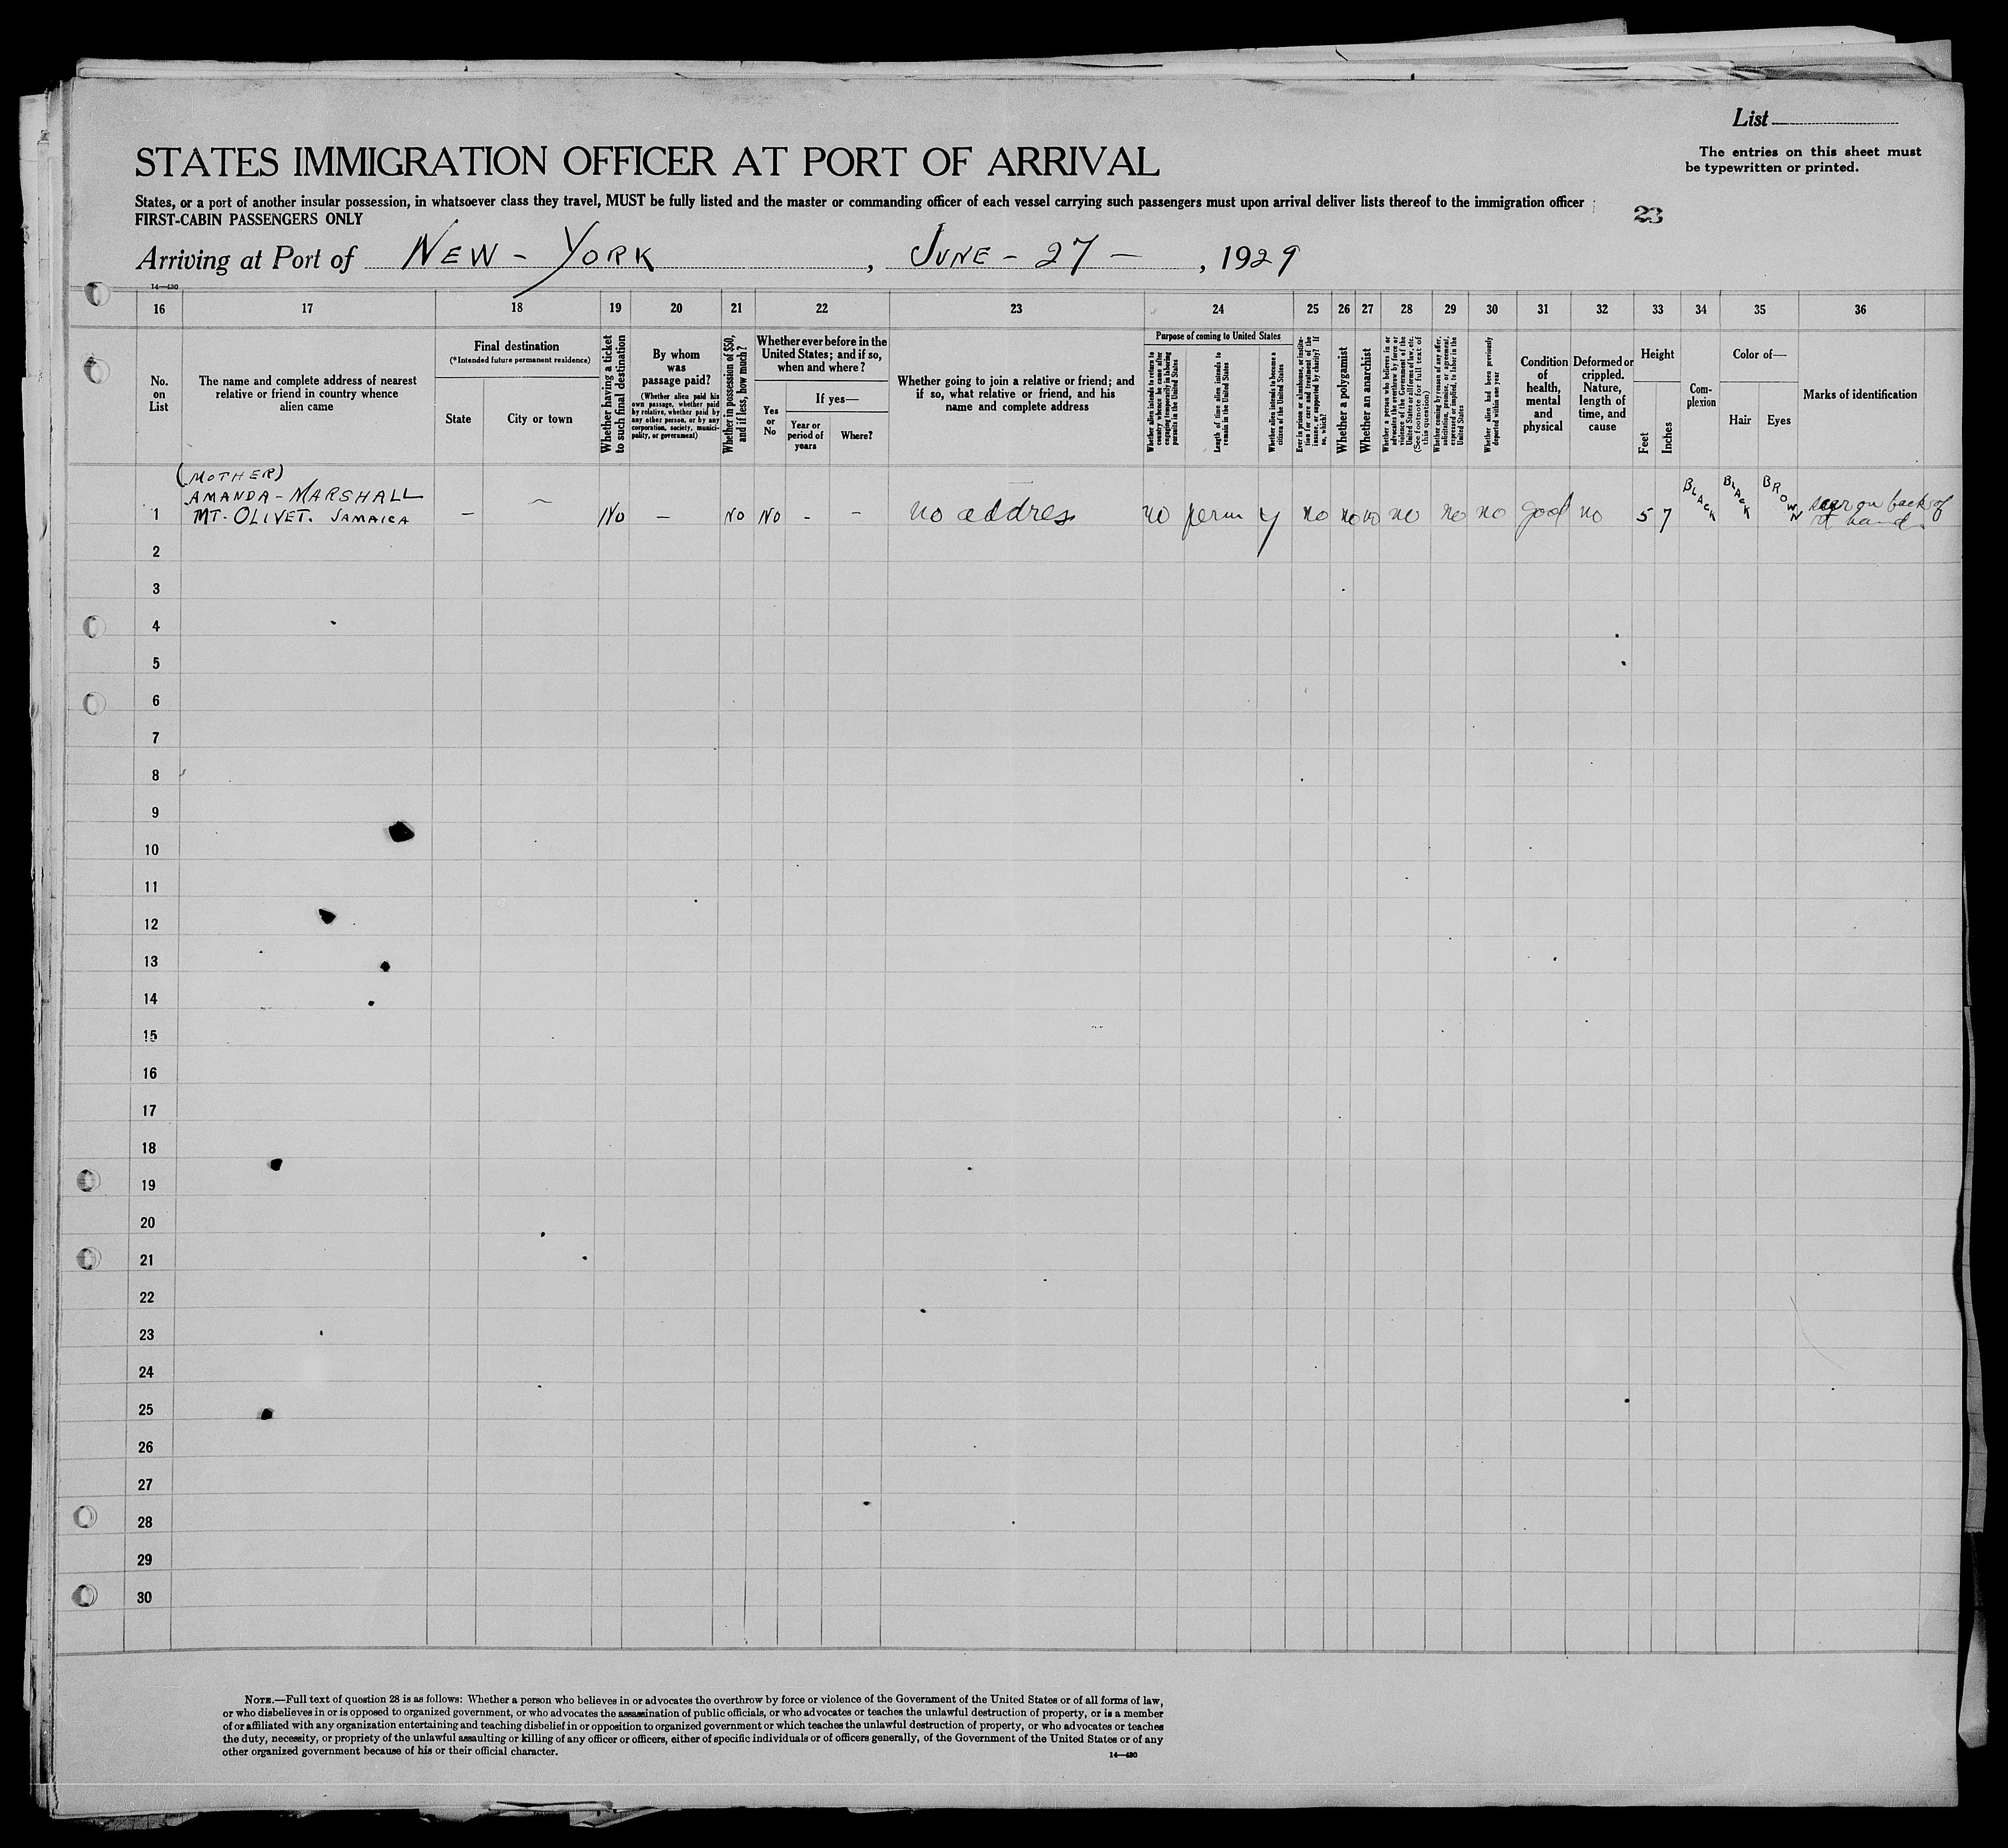 List
STATES IMMIGRATION OFFICER AT PORT OF ARRIVAL
The entries on this sheet must
be typewritten or printed.
States, or a port of another insular possession, in whatsoever class they travel, MUST be fully listed and the master or commanding officer of each vessel carrying such passengers must upon arrival deliver lists thereof to the immigration officer
FIRST-CABIN PASSENGERS ONLY
23
Arriving at Port of NEW - YORK, JUNE - 27 -, 1929
14—430
16 17 18 19 20 21 22 23 24 25 26 27 28 29 30 31 32 33 34 35 36
No.
on
List
The name and complete address of nearest
relative or friend in country whence
alien came
Final destination
(*Intended future permanent residence)
State
City or town
Whether having a ticket
to such final destination
By whom
was
passage paid?
(Whether alien paid his
own passage, whether paid
by relative, whether paid by
any other person, or by any
corporation, society, munici-
pality, or government)
Whether in possession of $50,
and if less, how much?
Whether ever before in the
United States; and if so,
when and where?
Yes
or
No
If yes—
Year or
period of
years
Where?
Whether going to join a relative or friend; and
if so, what relative or friend, and his
name and complete address
Purpose of coming to United States
Whether alien intends to return to
country whence he came after
engaging temporarily in laboring
pursuits in the United States
Length of time alien intends to
remain in the United States
Whether alien intends to become a
citizen of the United States
Ever in prison or almshouse, or institu-
tion for care and treatment of the
insane, or supported by charity? If
so, which?
Whether a polygamist
Whether an anarchist
Whether a person who believes in or
advocates the overthrow by force or
violence of the Government of the
United States or all forms of law, etc.
(See footnote for full text of
this question)
Whether coming by reason of any offer,
solicitation, promise, or agreement,
expressed or implied, to labor in the
United States
Whether alien had been previously
deported within one year
Condition
of
health,
mental
and
physical
Deformed or
crippled.
Nature,
length of
time, and
cause
Height
Feet
Inches
Com-
plexion
Color of—
Hair
Eyes
Marks of identification
(MOTHER)
AMANDA - MARSHALL
1 MT. OLIVET. JAMAICA — — No — No No - - no addres no perm y no no no no no no good no 5 7 BLACK BLACK BROWN scar on back of
hand
2
3
4
5
6
7
8
9
10
11
12
13
14
15
16
17
18
19
20
21
22
23
24
25
26
27
28
29
30
NOTE.—Full text of question 28 is as follows: Whether a person who believes in or advocates the overthrow by force or violence of the Government of the United States or of all forms of law,
or who disbelieves in or is opposed to organized government, or who advocates the assassination of public officials, or who advocates or teaches the unlawful destruction of property, or is a member
of or affiliated with any organization entertaining and teaching disbelief in or opposition to organized government or which teaches the unlawful destruction of property, or who advocates or teaches
the duty, necessity, or propriety of the unlawful assaulting or killing of any officer or officers, either of specific individuals or of officers generally, of the Government of the United States or of any
other organized government because of his or their official character.
14—430